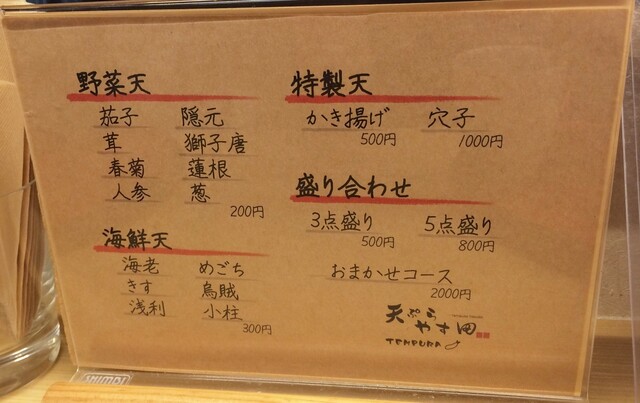 野菜天
茄子 隠元
茸 獅子唐
春菊 蓮根
人参 葱
200円
海鮮天
海老 めごち
きす 烏賊
浅利 小柱
300円
特製天
かき揚げ 穴子
500円 1000円
盛り合わせ
3点盛り 5点盛り
500円 800円
おまかせコース
2000円
天ぷら
やす田
TEMPURA
SHIMPI